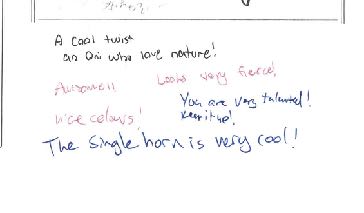 A cool twist
an Oni who love nature!
Awsome!!
Looks very fierce!
You are very talented!
keep it up!
nice colours!
The single horn is very cool!